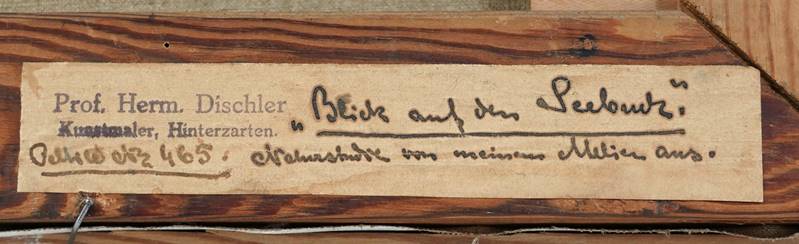 Prof. Herm. Dischler
Kunstmaler, Hinterzarten.
"Blick auf den Seebuck".
465. Naturstudie von meinem Atelier aus.